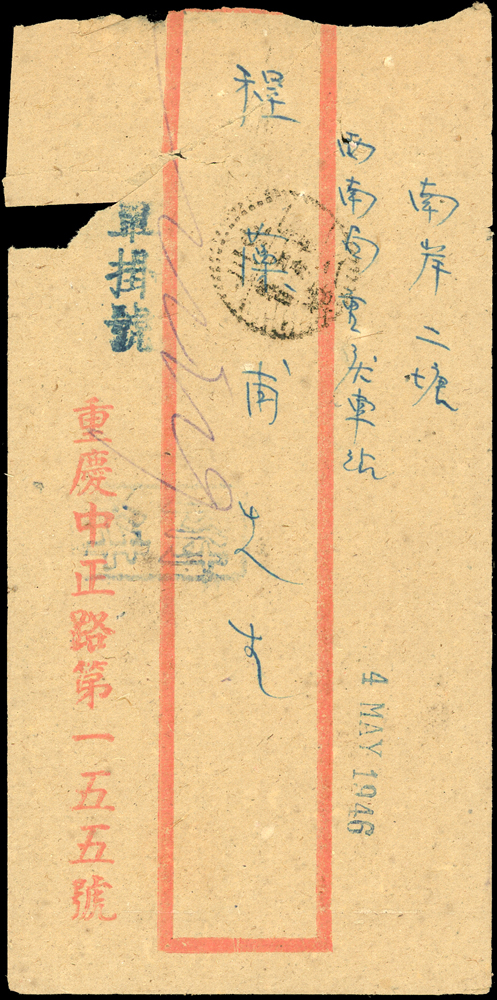 南岸二塘
西南局重慶車站
程
甫
先生
單掛號
重慶中正路第一五五號
4 MAY 1946